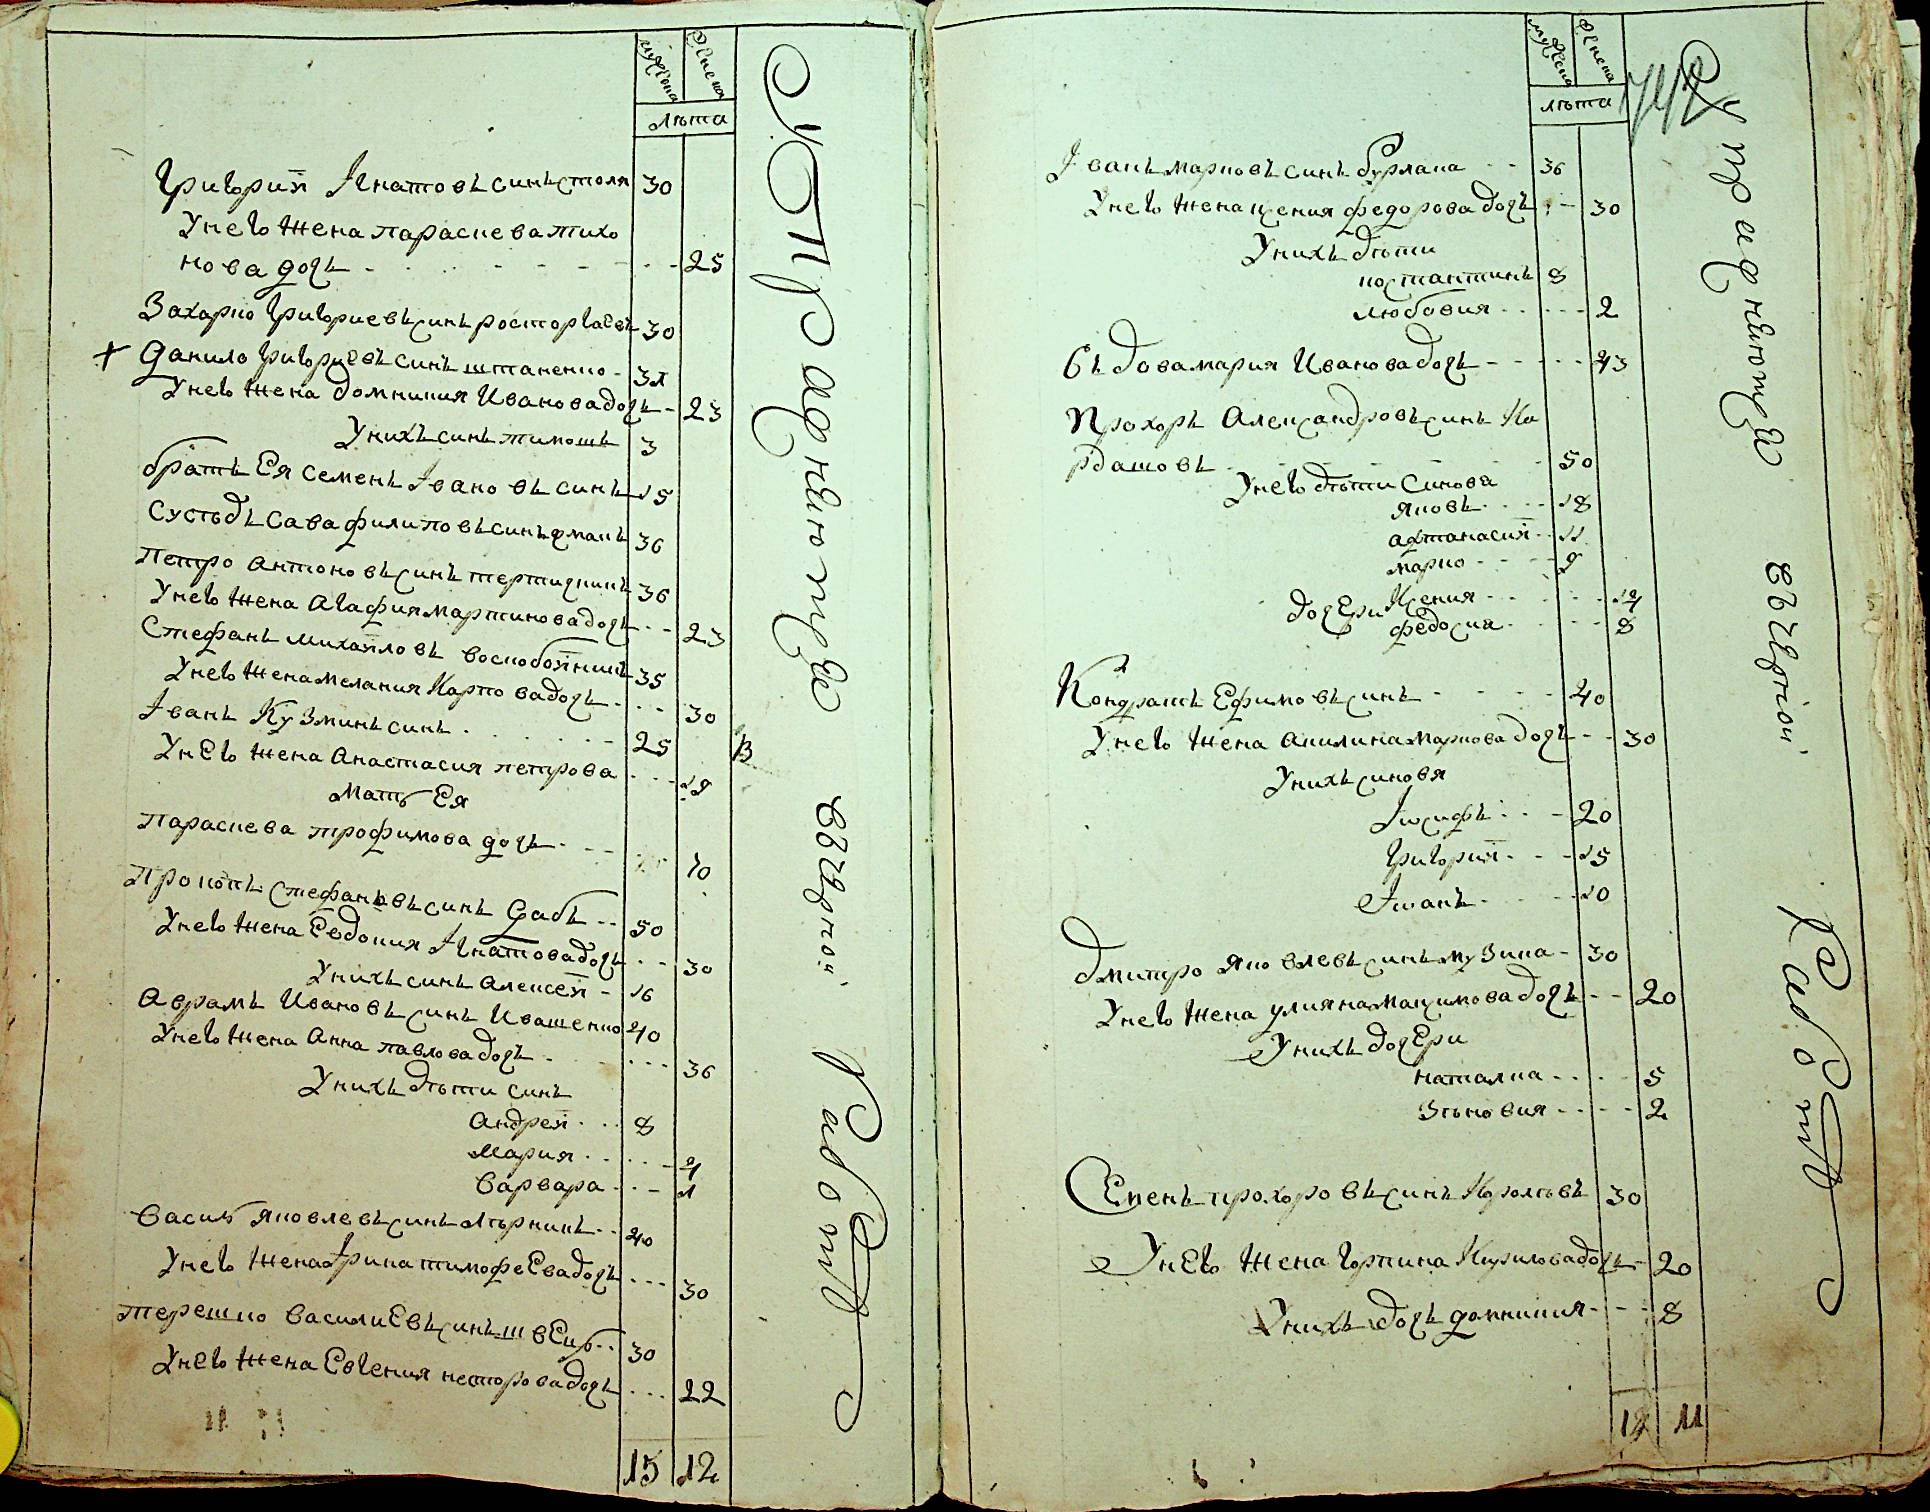 мужеска женска
лѣта
Григорий Игнатовъ синъ столя 30
У него жена параскева тихо
нова дочь 25
Захарко Григориевъ синъ росторгаевъ 30
+ Данило Григориевъ синъ штаненко 31
У него жена домникия Иванова дочь 23
У нихъ синъ тимошъ 3
братъ Ея семенъ Ивановъ синъ 15
Сусѣдъ Сава филиповъ синъ 36
Петро антоновъ синъ 36
У него жена Агафия мартинова дочь 23
Стефанъ михайловъ воскобойникъ 35
У него жена мелания Карпова дочь 30
Іванъ Кузминъ синъ 25
У него жена Анастасия петрова 19
мать Ея
параскева трофимова дочь 70
Прокопъ Стефановъ синъ Дабъ 50
У него жена Евдокия Игнатова дочь 30
У нихъ синъ алексей 16
Аврамъ Ивановъ синъ Ивашенко 40
У него жена анна павлова дочь 36
У нихъ дѣти синъ
андрей 8
мария 4
варвара 1
василь яковлевъ синъ 40
У него жена Ірина тимофеева дочь 30
терешко василиевъ синъ швецъ 30
У него жена Евгения несторова дочь 22
15 12
У праджнюшца
въ чедной
работѣ
мужеска женска
лѣта
Іванъ марковъ синъ бурлака 36
У него жена ксения федорова дочь 30
У нихъ дѣти
костантинъ 8
любовия 2
Въдова мария Иванова дочь 43
Прохоръ Александровъ синъ Ка
рдашовъ 50
У него дѣти синове
яковъ 18
афтанасий 11
марко 9
дочери Ксения 14
федосия 8
Кондратъ Ефимовъ синъ 40
У него жена акилина маркова дочь 30
У нихъ синовя
Іосифъ 20
Григорий 15
Іоанъ 10
Дмитро яковлевъ синъ музика 30
У него жена улияна максимова дочь 20
У нихъ дочери
наталка 5
зѣновия 2
Семенъ прохоровъ синъ Королювъ 30
У него жена Горпина Кирилова дочь 20
У нихъ дочь домникия 8
12 11
работѣ